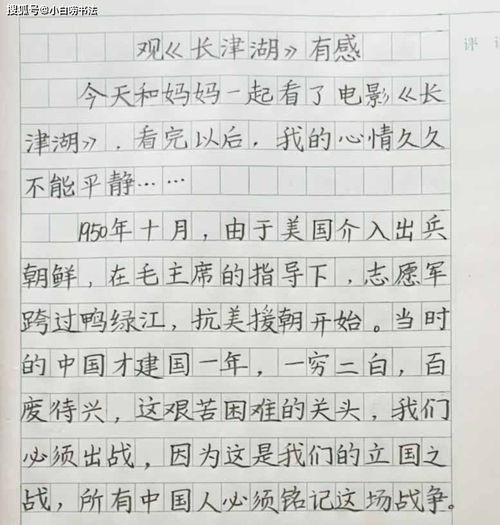 搜狐号@小白唠书法
评
观《长津湖》有感
今天和妈妈一起看了电影《长
津湖》，看完以后，我的心情久久
不能平静……
1950年十月，由于美国介入出兵
朝鲜，在毛主席的指导下，志愿军
跨过鸭绿江，抗美援朝开始。当时
的中国才建国一年，一穷二白，百
废待兴，这艰苦困难的关头，我们
必须出战，因为这是我们的立国之
战，所有中国人必须铭记这场战争。